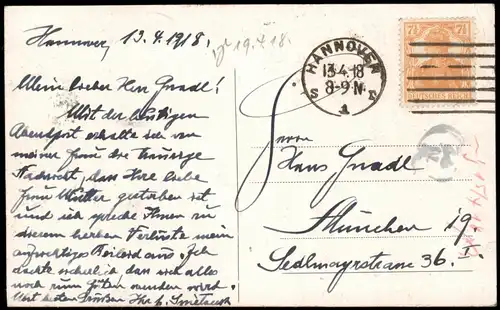 Hannover, 13.4.1918.
19.4.18.
Mein lieber Herr Gnadl!
Mit der heutigen
Abendpost erhalte ich von
meiner Frau die traurige
Nachricht, daß Ihre liebe
Frau Mutter gestorben ist
und ich spreche Ihnen zu
diesem herben Verluste mein
aufrichtiges Beileid aus. Ich
dachte sicherlich, daß sich alles
noch zum Guten wenden wird.
Mit besten Grüßen Ihr
HANNOVER
13.4.18
8-9 N.
S
1
7½ 7½
DEUTSCHES REICH
Herrn
Hans Gnadl
München 19
Sedlmayrstrasse 36.